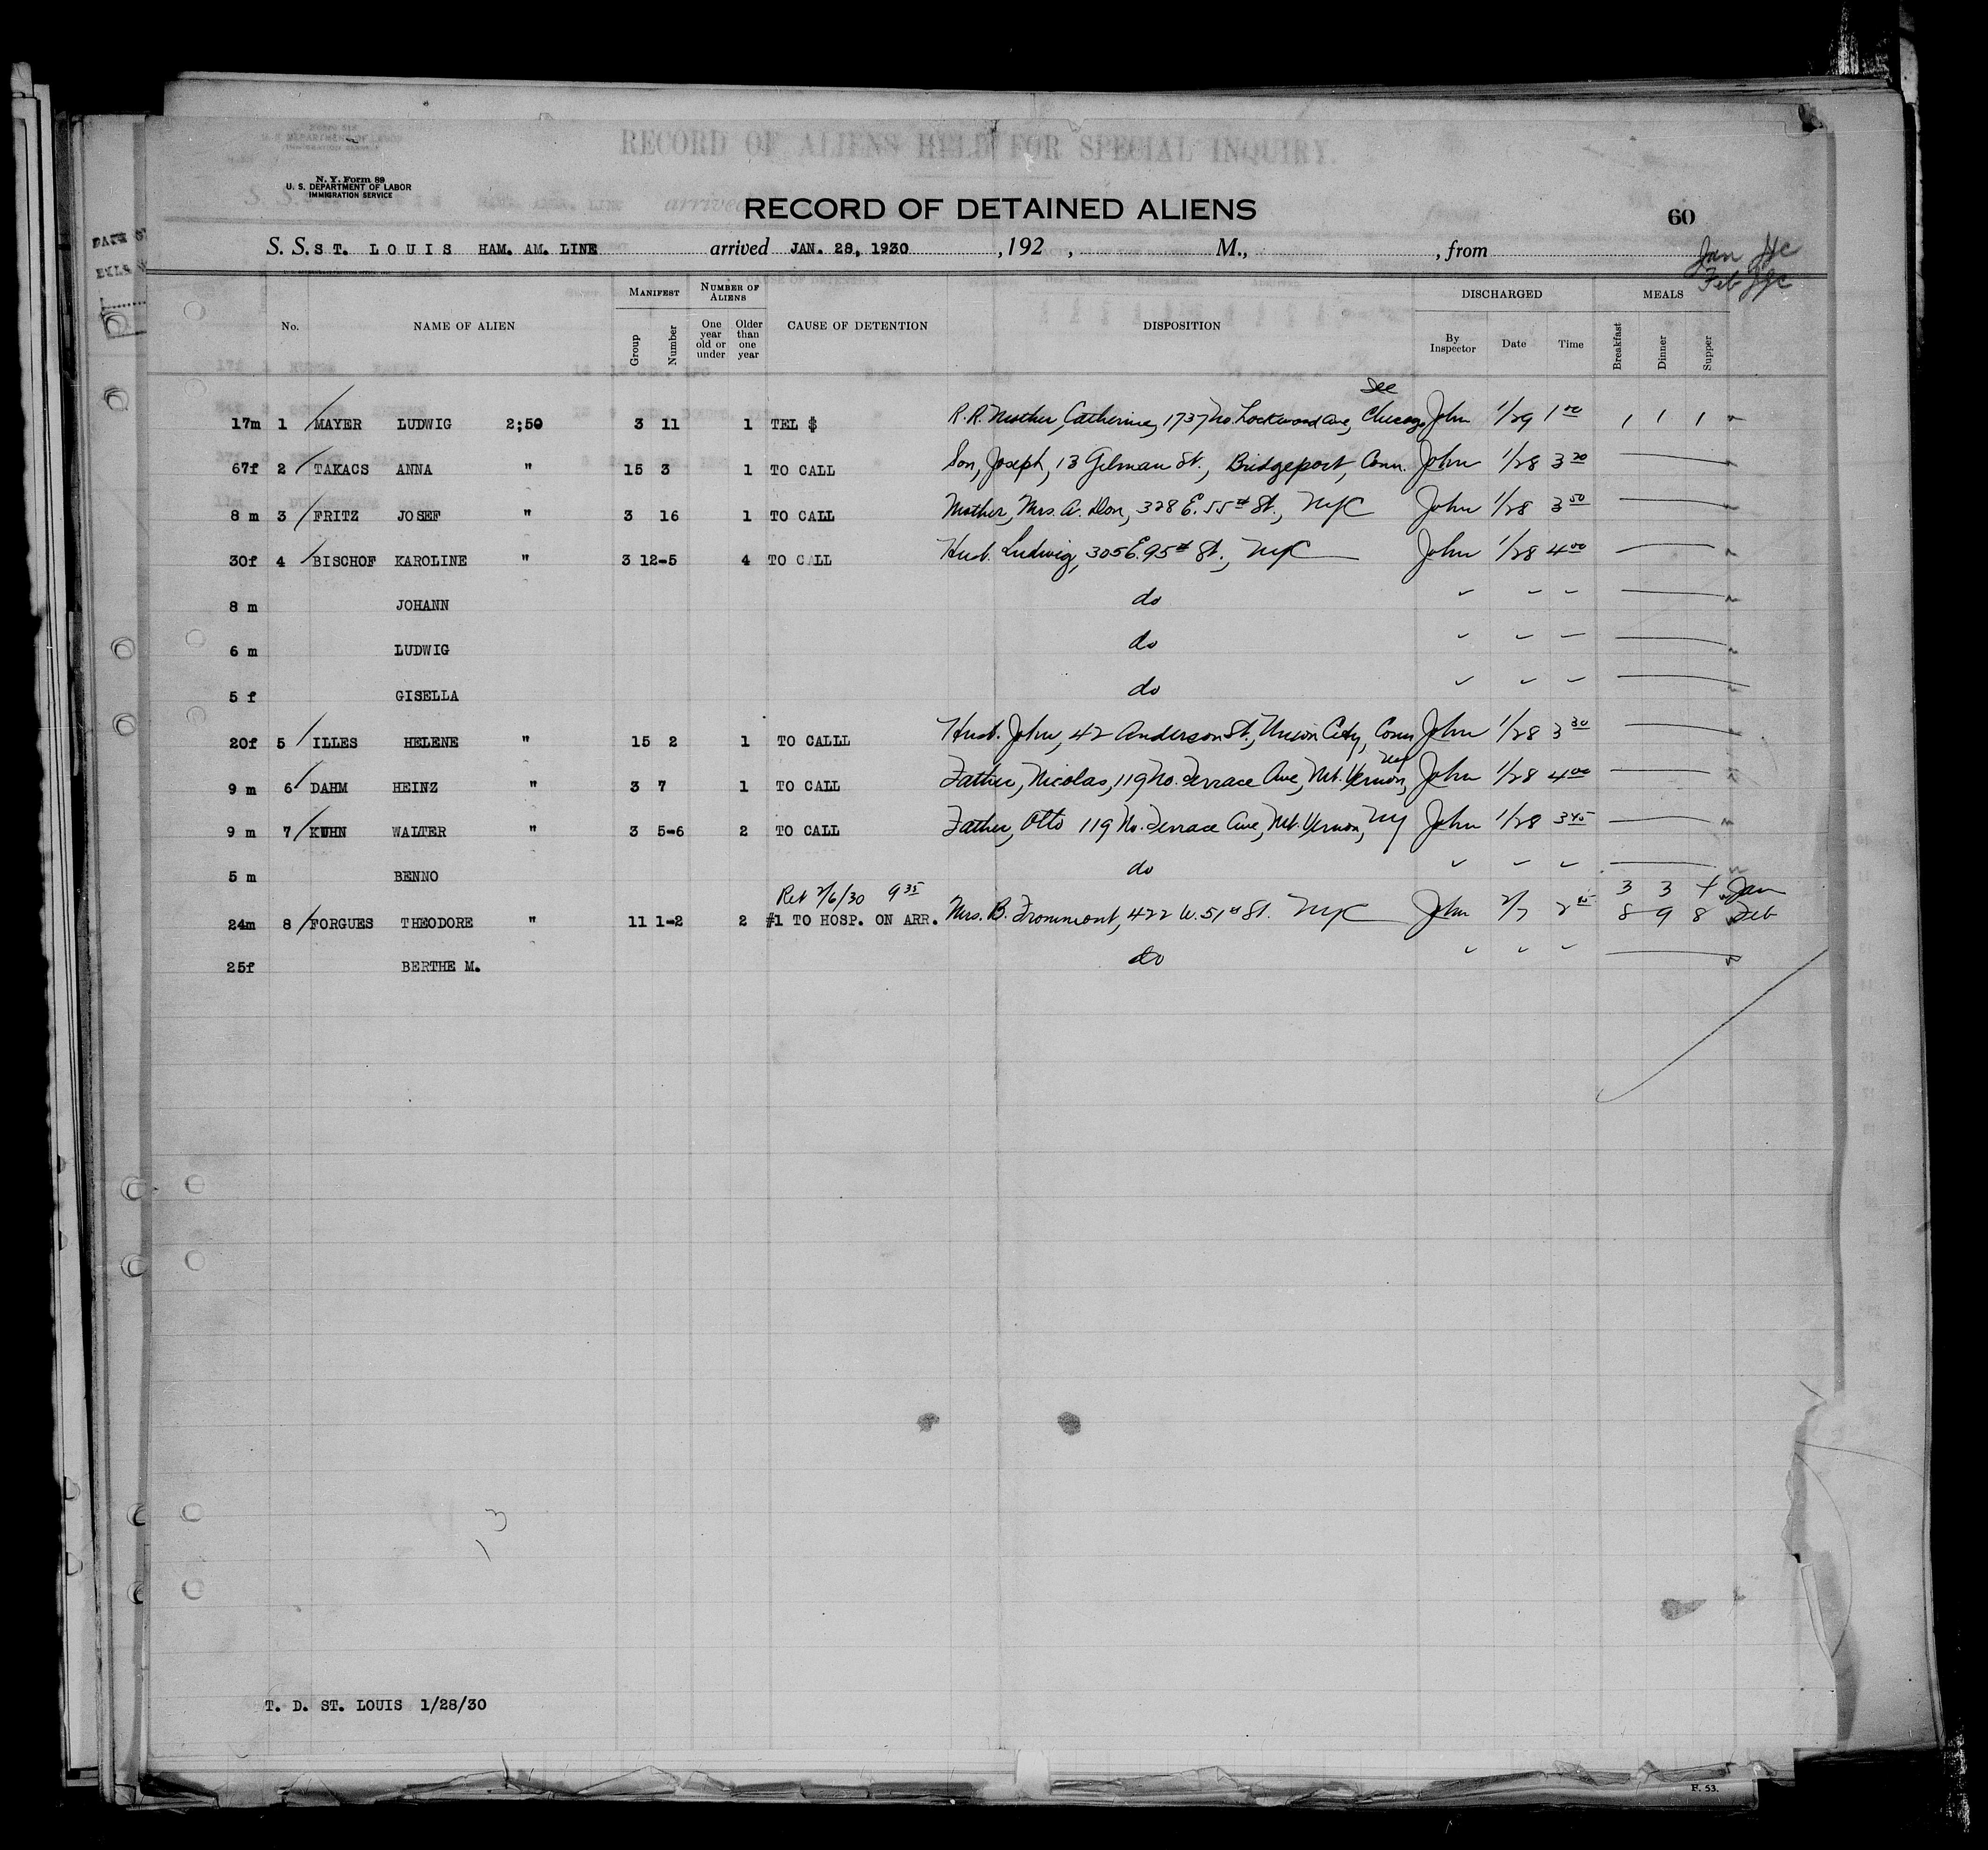 RECORD OF ALIENS HELD FOR SPECIAL INQUIRY.
N. Y. Form 89
U. S. DEPARTMENT OF LABOR
IMMIGRATION SERVICE
RECORD OF DETAINED ALIENS
60
S. S. ST. LOUIS HAM. AM. LINE arrived JAN. 28, 1930 , 192 , M., , from
Jan
Feb
No. NAME OF ALIEN MANIFEST Group Number NUMBER OF ALIENS One year old or under Older than one year CAUSE OF DETENTION DISPOSITION DISCHARGED By Inspector Date Time MEALS Breakfast Dinner Supper
See
17m 1 MAYER LUDWIG 2;50 3 11 1 TEL $ R.R. Mother, Catherine, 1737 No. Lockwood Ave, Chicago John 1/29 1 00 1 1 1
67f 2 TAKACS ANNA " 15 3 1 TO CALL Son, Joseph, 13 Gilman St., Bridgeport, Conn. John 1/28 3 20
8 m 3 FRITZ JOSEF " 3 16 1 TO CALL Mother, Mrs. A. Don, 328 E. 55th St., NYC John 1/28 3 50
30f 4 BISCHOF KAROLINE " 3 12-5 4 TO CALL Husb. Ludwig, 305 E. 95th St., NYC John 1/28 4 00
8 m JOHANN do
6 m LUDWIG do
5 f GISELLA do
20f 5 ILLES HELENE " 15 2 1 TO CALLL Husb. John, 42 Anderson St., Union City, Conn John 1/28 3 30
9 m 6 DAHM HEINZ " 3 7 1 TO CALL Father, Nicolas, 119 No. Terrace Ave, Mt. Vernon, NY John 1/28 4 00
9 m 7 KUHN WALTER " 3 5-6 2 TO CALL Father, Otto 119 No. Terrace Ave, Mt. Vernon, NY John 1/28 3 45
5 m BENNO do
Ret 2/6/30 9 35 3 3 4 Jan
24m 8 FORGUES THEODORE " 11 1-2 2 #1 TO HOSP. ON ARR. Mrs. B. Frommont, 422 W. 51st St. NYC John 2/7 8 9 8 Feb
25f BERTHE M. do
13
T. D. ST. LOUIS 1/28/30
F. 53.